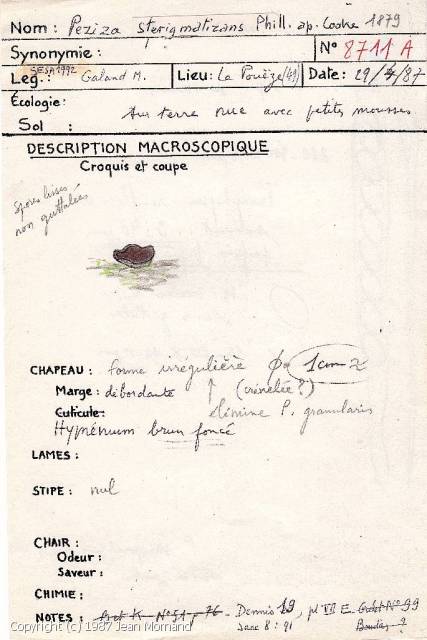 Nom : Peziza sterigmatizans Phill. ap. Cooke 1879
Synonymie : N° 8711 A
SESA 1992
Leg. : Galand M. Lieu : La Pouëze (49) Date : 29/4/87
Écologie :
Sol : sur terre nue avec petites mousses
DESCRIPTION MACROSCOPIQUE
Croquis et coupe
Spores lisses
non guttulées
CHAPEAU : forme irrégulière ϕ = 1 cm
Marge : débordante ↑ (crénelée ?)
Cuticule : élimine P. granularis
Hyménium brun foncé
LAMES :
STIPE : nul
CHAIR :
Odeur :
Saveur :
CHIMIE :
NOTES : N° 51, 76 - Dennis 19, pl VII E. N° 99
8 : 91 Boudier
Copyright (c) 1987 Jean Mornand